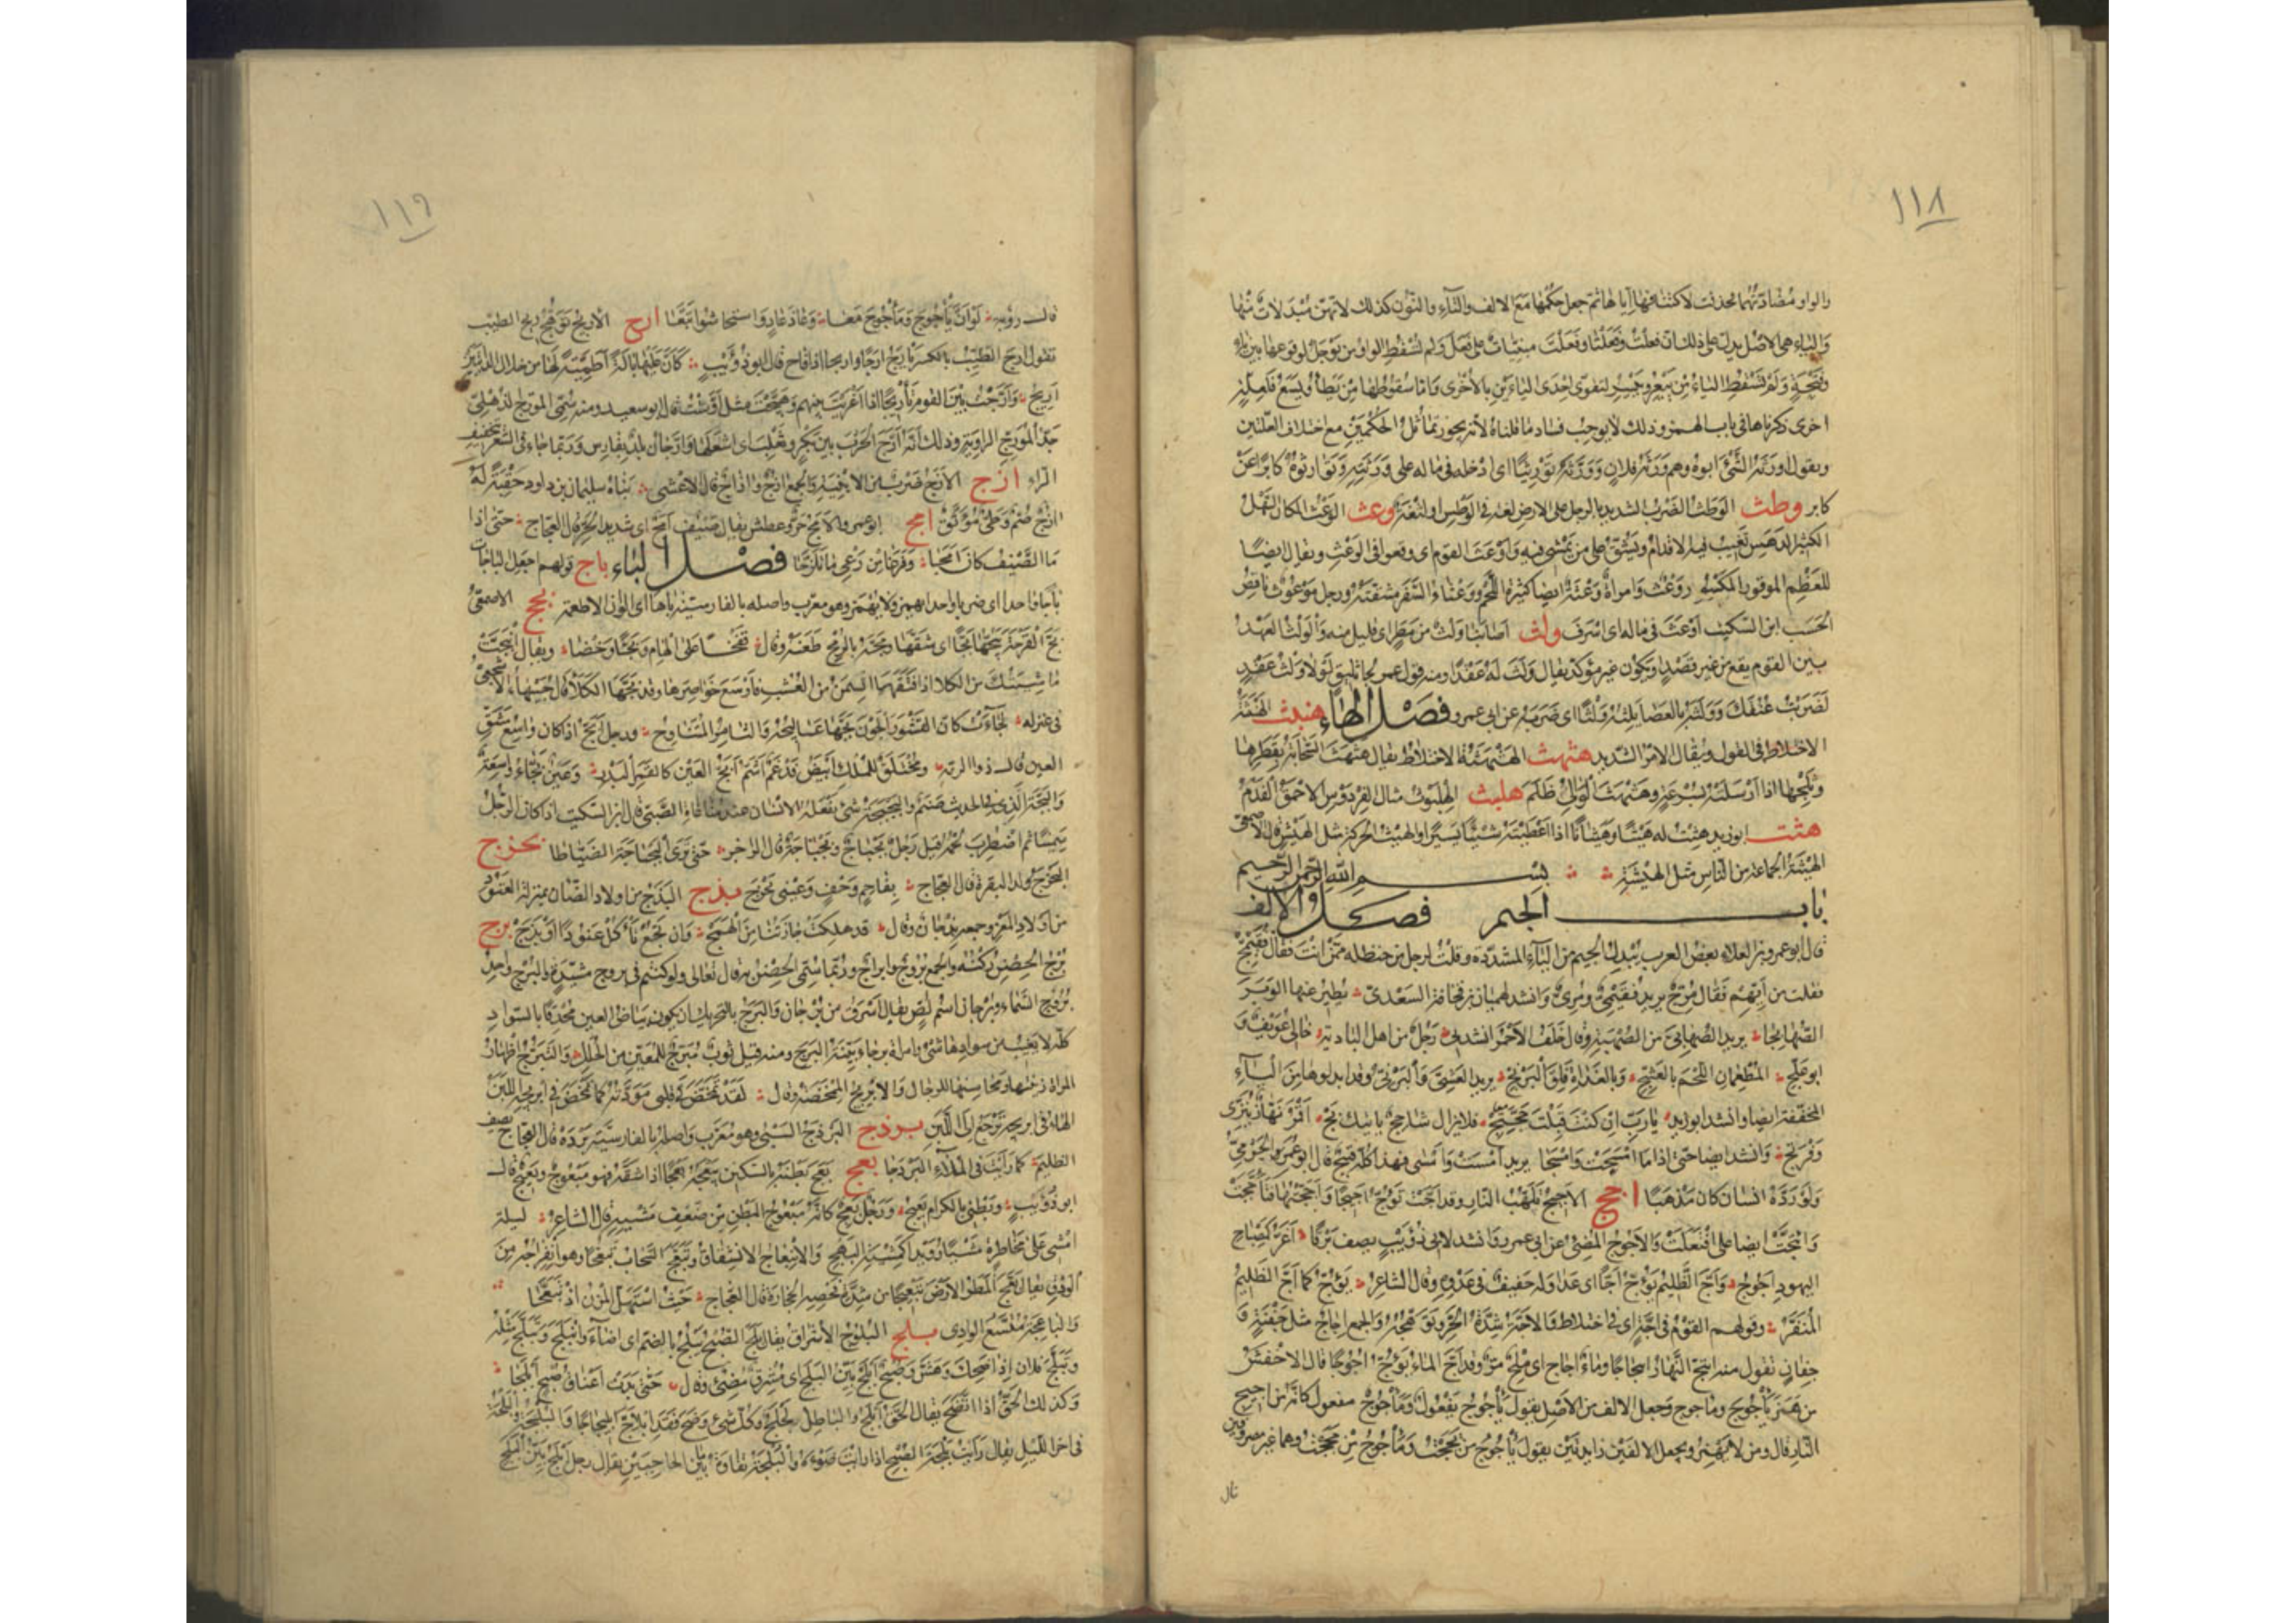 ١١٨
والواو مضادتهما فحذفت لاكتنافها اياها ثم جعل حكمها مع الالف والتاء والنون كذلك لانهن مبدلات منها
والياء هى الاصل يدل على ذلك ان فعلت وفعلنا وفعلت مبنيات على فعل ولم تسقط الواو من يوجل لوقوعها بين ياء
وفتحة ولم تسقط الياء من ييعر وييسر لتقوى احدى الياءين بالاخرى واما سقوطها من يطأ ويسع فلعلة
اخرى ذكرناها فى باب الهمز وذلك لا يوجب فساد ما قلناه لانه يجوز تماثل الحكمين مع اختلاف العلتين
وتقول اورثه الشئ ابوه وهم ورثة فلان وورثه توريثا اى ادخله فى ماله على ورثته وتوارثوه كابرا عن
كابر وطث الوطث الضرب الشديد بالرجل على الارض لغة فى الوطس او لثغة وعث الوعث المكان السهل
الكثير الدهس تغيب فيه الاقدام ويشق على من يمشى فيه واوعث القوم اى وقعوا فى الوعث ويقال ايضا
للعظم الموقور المكسور وعث وامراة وعثة ايضا كثيرة اللحم ووعثاء السفر مشقته ورجل موعوث ناقص
الحسب ابن السكيت اوعث فى ماله اى اسرف ولث اصابنا ولث من مطر اى قليل منه والولث العهد
بين القوم يقع من غير قصد او يكون غير مؤكد يقال ولث له عقدا ومنه قول عمر لجاثليق لولا ولث عقد
لضربت عنقك وولثه بالعصا يلثه ولثا اى ضربه عن ابى عمرو فصل الهاء هنبث الهنبثة
الاختلاط فى القول ويقال الامر الشديد هثهث الهثهثة الاختلاط يقال هثهث السحابة بقطرها
وثلجها اذا ارسلته بسرعة وهثهث الوالى ظلم هلبث الهلبوث مثال الفردوس الاحمق الفدم
هثت ابو زيد هثت له هيثا وهيثانا اذا اعطيته شيئا يسيرا والهيث الحركة مثل الهيش قال الاصمعى
الهيثة الجماعة من الناس مثل الهيشة بسم الله الرحمن الرحيم
باب الجيم فصل الالف
قال ابو عمرو بن العلاء بعض العرب يبدل الجيم من الياء المشددة وقلت لرجل من حنظلة ممن انت فقال فقيمج
فقلت من ايهم فقال مرج يريد فقيمى ومرى وانشد لهميان بن قحافة السعدى يطير عنها الوبر
الصهابجا يريد الصهابى من الصهبة وقال خلف الاحمر انشدنى رجل من اهل البادية خالى عويف و
ابو علج المطعمان اللحم بالعشج وبالغداة فلق البرنج يريد العشى والبرنى وقد ابدلوها من الياء
المخففة ايضا وانشد ابو زيد يا رب ان كنت قبلت حجتج فلا يزال شاحج ياتيك بج اقمر نهاز ينزى
وفرتج وانشد ايضا حتى اذا ما امسجت وامسجا يريد امست وامسى فهذا كله قبيح قال ابو عمر الجرمى
ولو رده انسان كان مذهبا اجج الاجيج تلهب النار وقد اجت تؤج اجيجا واججتها فتأججت
وائتجت ايضا على افتعلت والاجوج المضئ عن ابى عمرو وانشد لابى ذؤيب يصف برقا اغر كمصباح
اليهود اجوج واج الظليم يؤج اجا اى عدا وله حفيف فى عدوه وقال الشاعر يؤج كما اج الظليم
المنفر وقولهم القوم فى اجة اى فى اختلاط والاجة شدة الحر وتوهجه والجمع اجاج مثل جفنة و
جفان تقول منه ائتج النهار ائتجاجا وماء اجاج اى ملح مر وقد اج الماء يؤج اجوجا قال الاخفش
من همز ياجوج وماجوج وجعل الالف من الاصل يقول ياجوج يفعول وماجوج مفعول كانه من اجيج
النار قال ومن لا يهمز ويجعل الالفين زايدتين يقول ياجوج من يججت وماجوج من مججت وهما غير مصروفين
قال
١١٩
قال رؤبة لو ان ياجوج وماجوج معا وعاد عاد واستجاشوا تبعا ارج الارج توهج ريح الطيب
تقول ارج الطيب بالكسر يأرج ارجا واريجا اذا فاح قال ابو ذؤيب كان عليها بالة لطمية لها من خلال الدأيتين
اريج وارجت بين القوم تأريجا اذا اغريت بينهم وهيجت مثل ارشت قال ابو سعيد ومنه سمى المؤرج الذهلى
جد المؤرج الراوية وذلك انه ارج الحرب بين بكر وتغلب اى اشعلها وارجان بلد بفارس وربما جاء فى الشعر بتخفيف
الراء ازج الازج ضرب من الابنية والجمع ازج وآزاج قال الاعشى بناه سليمان بن داود حقبة له
ازج صم وطى موثق امج ابو عمرو الامج حر وعطش يقال صيف امج اى شديد الحر قال العجاج حتى اذا
ما الصيف كان امجا وفرغا من رعى ما تلزجا فصل الباء باج قولهم اجعل الباجات
باجا واحدا اى ضربا واحدا يهمز ولا يهمز وهو معرب واصله بالفارسية باها اى الوان الاطعمة بجج الاصمعى
بج القرحة يبجها بجا اى شقها وبجه بالرمح طعنه وقال قفخا على الهام وبجا وخضا ويقال انبجت
ماشيتك من الكلا اذا فتقها السمن من العشب فاوسع خواصرها وقد بجها الكلا قال جبيهاء الاشجعى
فى عنزله لجاءت كان القسور الجون بجها عساليجه والثامر المتناوح ورجل ابج اذا كان واسع مشق
العين قال ذو الرمة ومختلق للملك ابيض فدغم اشم ابج العين كالقمر البدر وعين بجاء واسعة
والبجة الذى فى الحديث صنم والبجبجة شئ يفعله الانسان عند مناغاة الصبى قال ابن السكيت اذا كان الرجل
سمينا ثم اضطرب لحمه قيل رجل بجباج وبجباجة قال الراجز حتى ترى البجباجة الضياطا بحزج
البحزج ولد البقرة قال العجاج بفاحم وحف وعينى بحزج بذج البذج من اولاد الضأن بمنزلة العتود
من اولاد المعز وجمعه بذجان وقال قد هلكت جارتنا من الهمج وان تجع تأكل عتودا او بذج برج
برج الحصن ركنه والجمع بروج وابراج وربما سمى الحصن به قال تعالى ولو كنتم فى بروج مشيدة والبرج واحد
بروج السماء وبرجان اسم لص يقال اسرق من برجان والبرج بالتحريك ان يكون بياض العين محدقا بالسواد
كله لا يغيب من سوادها شئ وامراة برجاء بينة البرج ومنه قيل ثوب مبرج للمعين من الحلل والتبرج اظهار
المراة زينتها ومحاسنها للرجال والابريج الممخضة وقال لقد تمخض فى قلبى مودتها كما تمخض فى ابريجه اللبن
الهاء فى ابريجه ترجع الى اللبن بردج البردج السبى وهو معرب واصله بالفارسية برده قال العجاج يصف
الظليم كما رايت فى الملاء البردجا بعج بعج بطنه بالسكين يبعجه بعجا اذا شقه فهو مبعوج وبعيج قال
ابو ذؤيب وبطنى بالكرام بعيج ورجل بعج كانه مبعوج البطن من ضعف مشيه قال الشاعر ليلة
امشى على مخاطرة مشيا رويدا كمشية البعج والانبعاج الانشقاق وتبعج السحاب تبعجا وهو انفراجه من
الودق يقال بعج المطر الارض تبعيجا من شدة فحصه الحجارة قال العجاج حيث استهل المزن اذ تبعجا
والباعجة متسع الوادى بلج البلوج الاشراق يقال بلج الصبح يبلج بالضم اى اضاء وانبلج وتبلج مثله
وتبلج فلان اذا ضحك وهش وصبح ابلج بين البلج اى مشرق مضئ وقال حتى بدت اعناق صبح ابلجا
وكذلك الحق اذا اتضح يقال الحق ابلج والباطل لجلج وكل شئ وضح فقد ابلاج ابليجاجا والبلجة والبلجة
فى اخر الليل يقال رايت بلجة الصبح اذا رايت ضوءه والبلجة نقاوة ما بين الحاجبين يقال رجل ابلج بين البلج